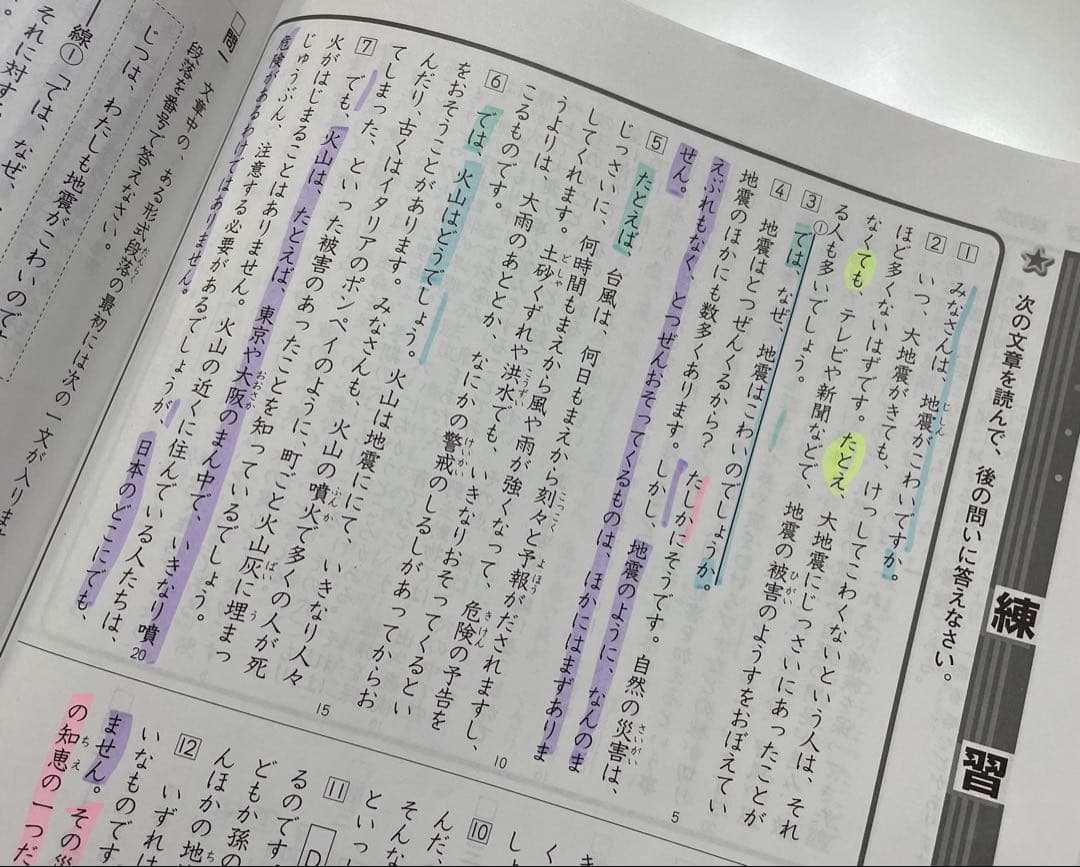 練習
★ 次の文章を読んで、後の問いに答えなさい。
1 みなさんは、地震がこわいですか。
2 いつ、大地震がきても、けっしてこわくないという人は、それ
ほど多くないはずです。たとえ、大地震にじっさいにあったことが
なくても、テレビや新聞などで、地震の被害のようすをおぼえてい
る人も多いでしょう。
3 ①では、なぜ、地震はこわいのでしょうか。
4 地震はとつぜんくるから？ たしかにそうです。自然の災害は、
地震のほかにも数多くあります。しかし、地震のように、なんのま
えぶれもなく、とつぜんおそってくるものは、ほかにはまずありま
せん。
5 たとえば、台風は、何日もまえから刻々と予報がだされますし、
じっさいに、何時間もまえから風や雨が強くなって、危険の予告を
してくれます。土砂くずれや洪水でも、いきなりおそってくるとい
うよりは、大雨のあととか、なにかの警戒のしるしがあってからお
こるものです。
6 では、火山はどうでしょう。火山は地震ににて、いきなり人々
をおそうことがあります。みなさんも、火山の噴火で多くの人が死
んだり、古くはイタリアのポンペイのように、町ごと火山灰に埋まっ
てしまった、といった被害のあったことを知っているでしょう。
7 でも、火山は、たとえば、東京や大阪のまん中で、いきなり噴
火がはじまることはありません。火山の近くに住んでいる人たちは、
じゅうぶん、注意する必要があるでしょうが、日本のどこにでも、
危険があるわけではありません。
5
10
15
20
問一 文章中の、ある形式段落の最初には次の一文が入りま
段落を番号で答えなさい。
じつは、わたしも地震がこわいので
線①「では、なぜ、
それに対す
10
んだ、
そんな
といっ
11
るのです
どもか孫の
んほかの地
12 いずれは
いなものです
ません。その災
の知恵の一つだ